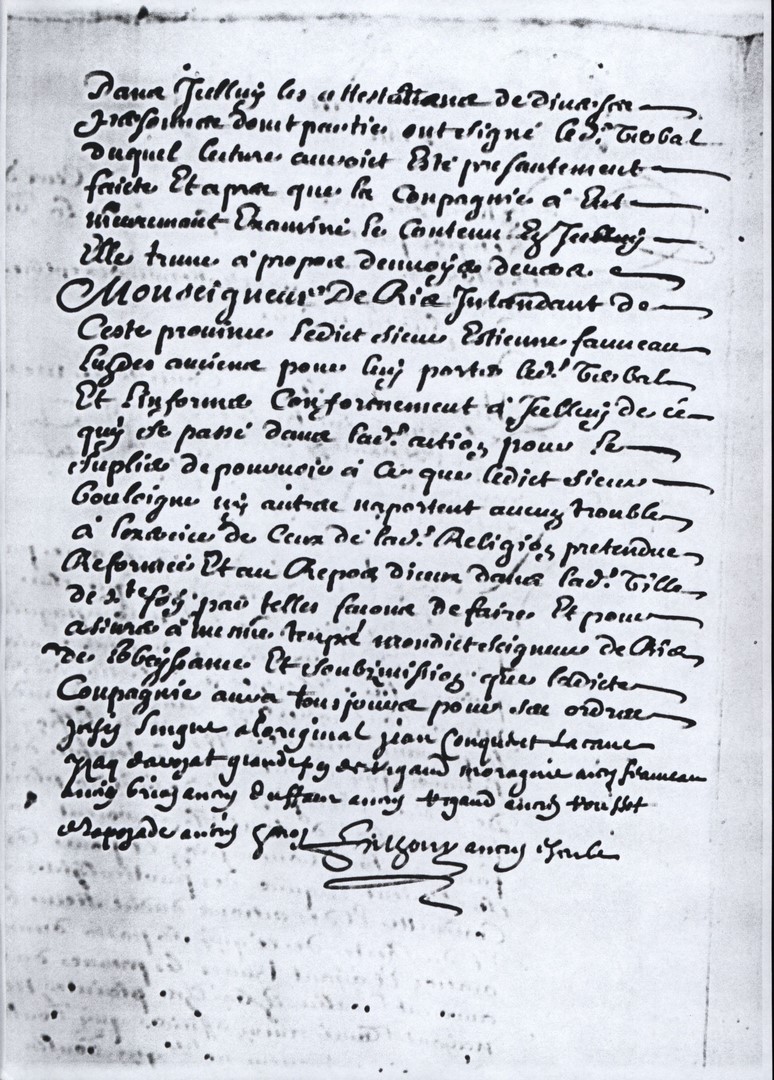 Dans Jcelluy les attestations de diverses
personnes dont partie ont signé led.t Verbal
duquel lecture auroict Esté presantement
faicte Et apres que la Compagnie à Eut
meurement Examiné le Contenu En Jcelluy
Elle treuue à propos denuoyer deuers
Monseigneur De Ris Jntandant de
Ceste prouince ledict sieur Estienne fauueau
Lung des antiens pour luy porter led.t Verbal
Et Linformer Conformement à Jcelluy de ce
quy cest passé dans lad.te action pour le
suplier de pouruoir à ce que ledict sieur
bouleigne ny autres naportent aucun trouble
à lexercice de Ceux de lad.te Religion pretendue
Reformée Et au Repos dieux dans lad.te Ville
de S.te foy par telles facons de faire Et pour
assurer à mesme temps mondict seigneur de Ris
de lobeyssance Et soubzmission que ladicte
Compagnie aura tousjours pour ses ordres
signé à Loriginal jean
ancien ancien
ancien